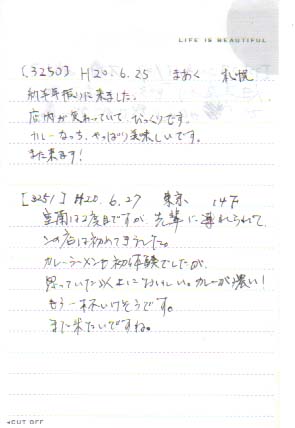 LIFE IS BEAUTIFUL
[3250] H20.6.25 まおく 札幌
約半年振りに来ました。
店内が変わっていて、びっくりです。
カレーなっち、やっぱり美味しいです。
また来ます!
[3251] H20.6.27 東京
室蘭は2度目ですが、先輩に連れられて、
この店は初めてきました。
カレーラーメンも初体験でしたが、
思っていた以上においしい。カレーが濃い!
もう一杯いけそうです。
また来たいですね。